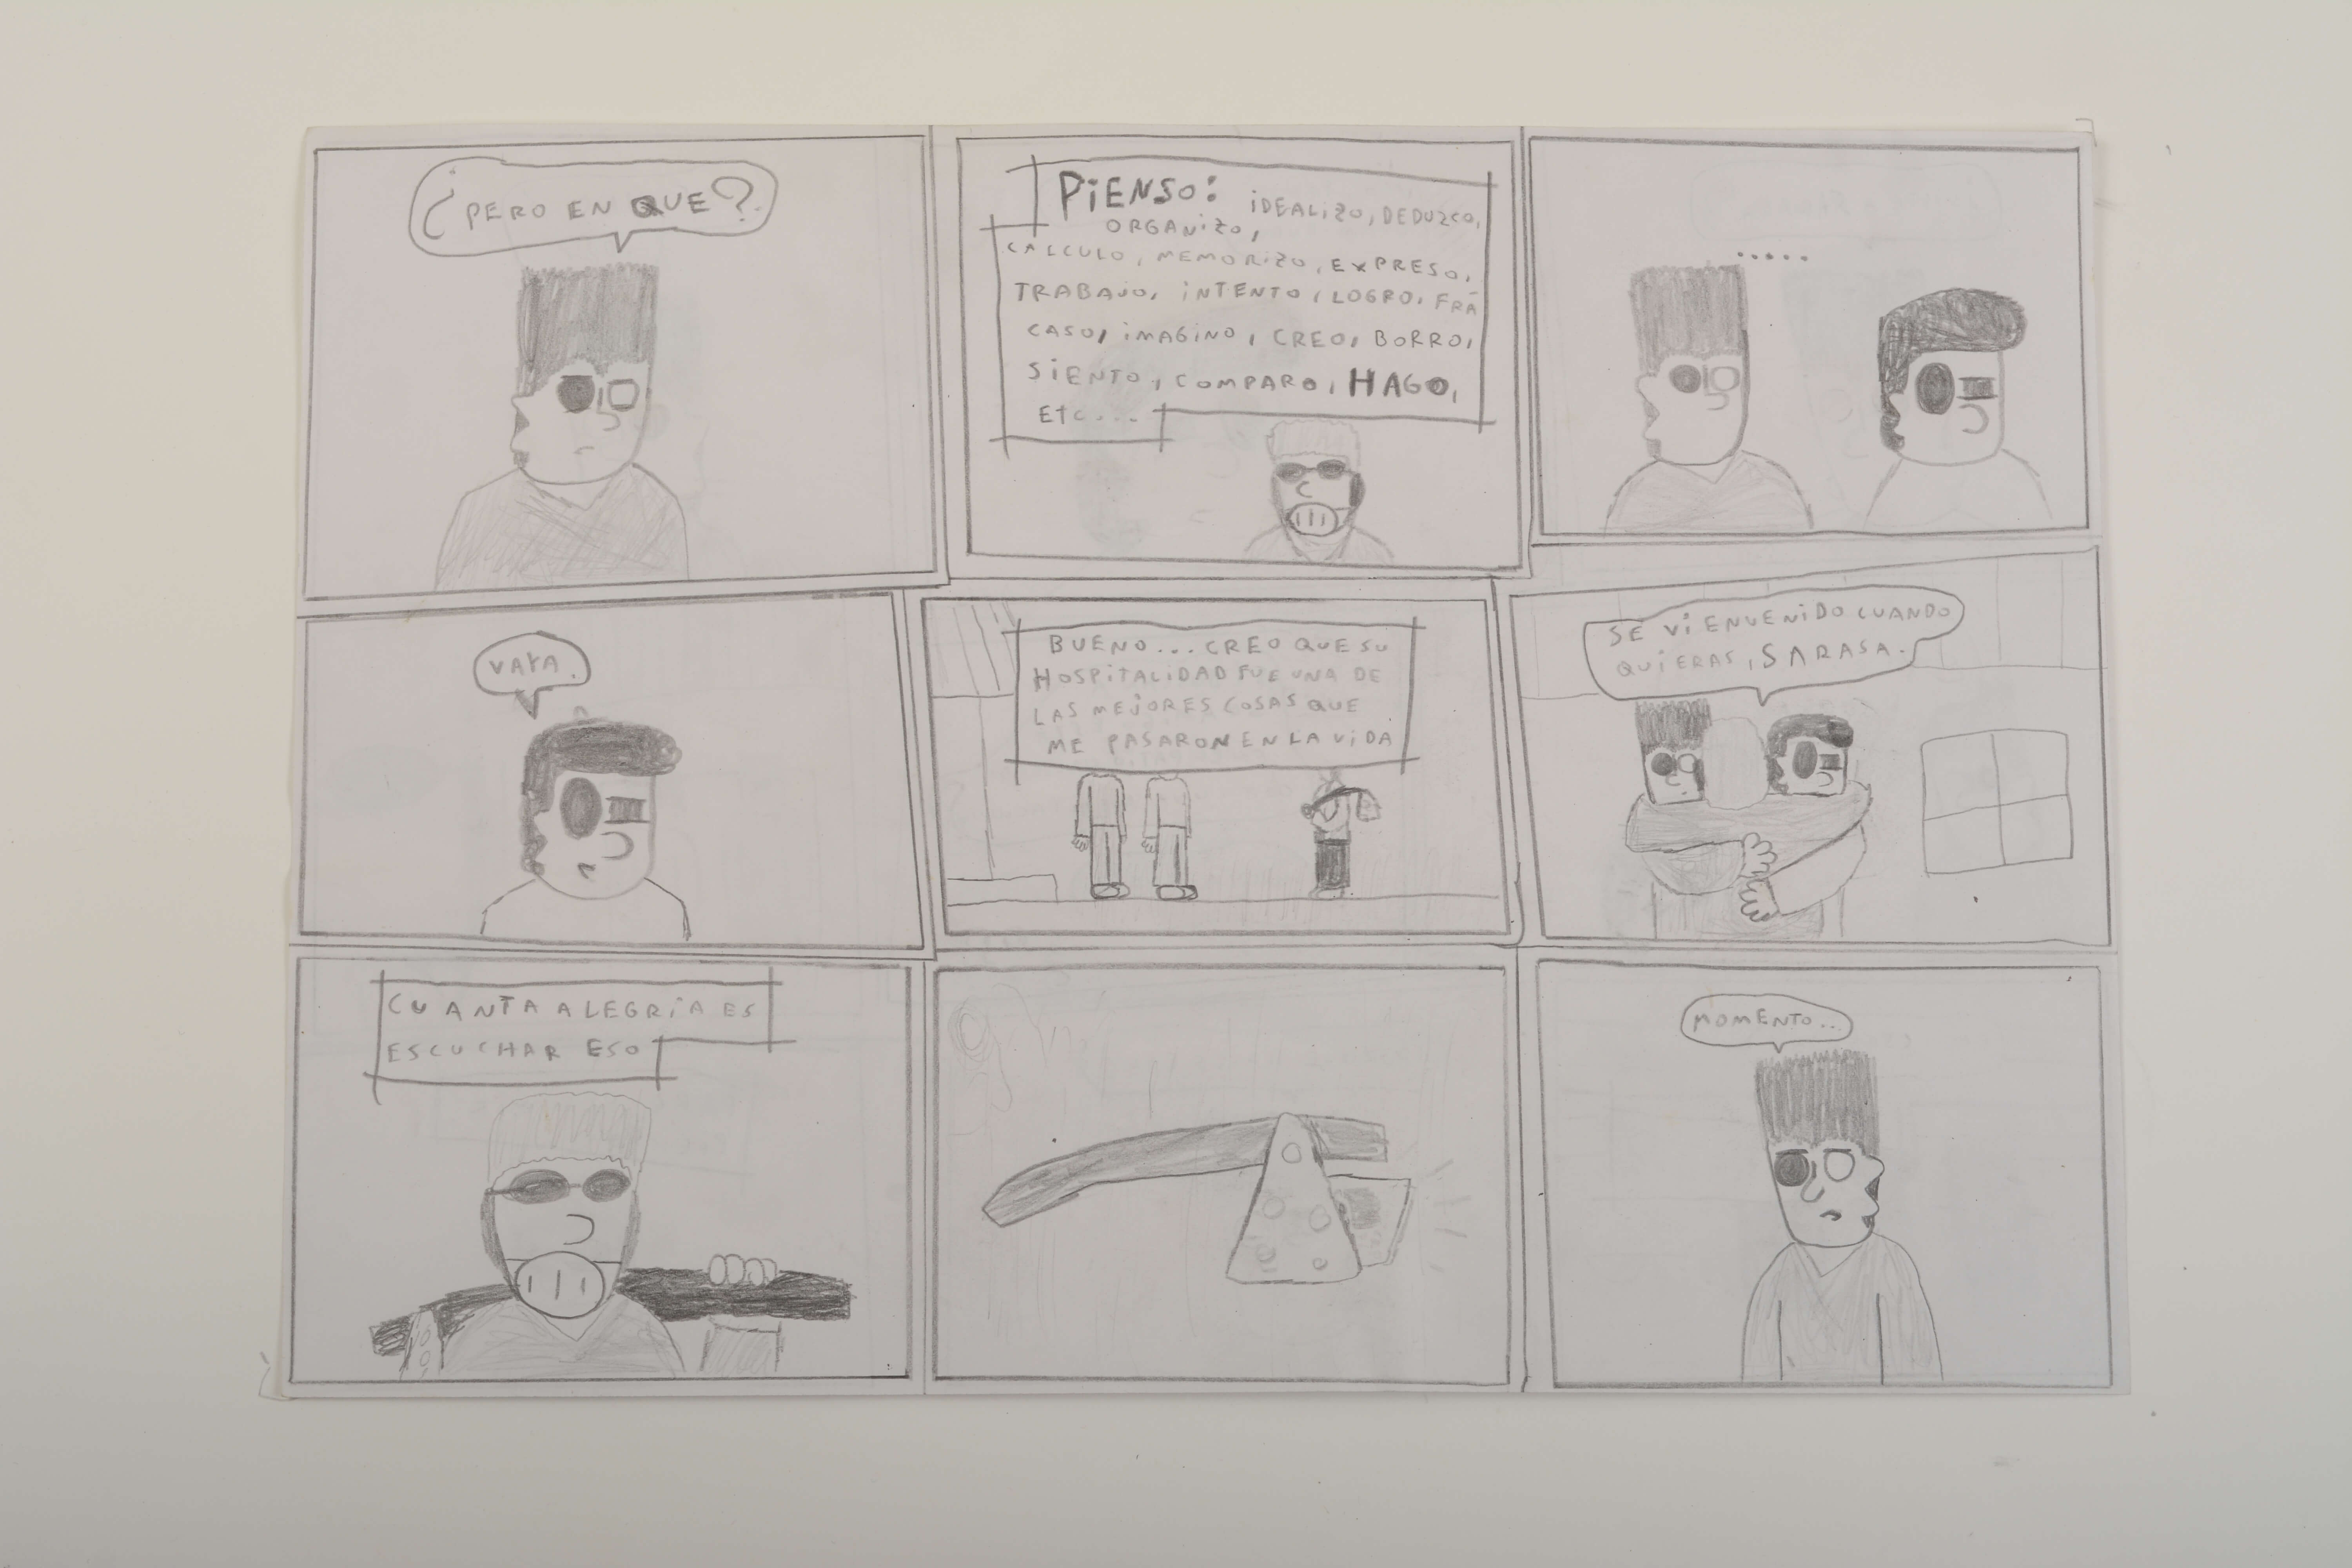 ¿PERO EN QUE?
PiENSO: iDEALiZO, DEDUZCO,
ORGANiZO,
CALCULO, MEMORiZO, EXPRESO,
TRABAJO, iNTENTO, LOGRO, FRA
CASO, iMAGiNO, CREO, BORRO,
SiENTO, COMPARO, HAGO,
Etc....
.....
VAYA.
BUENO... CREO QUE SU
HOSPiTALiDAD FUE UNA DE
LAS MEJORES COSAS QUE
ME PASARON EN LA ViDA
SE ViENVENiDO CUANDO
QUiERAS, SARASA.
CUANTA ALEGRiA ES
ESCUCHAR ESO
MOMENTO...